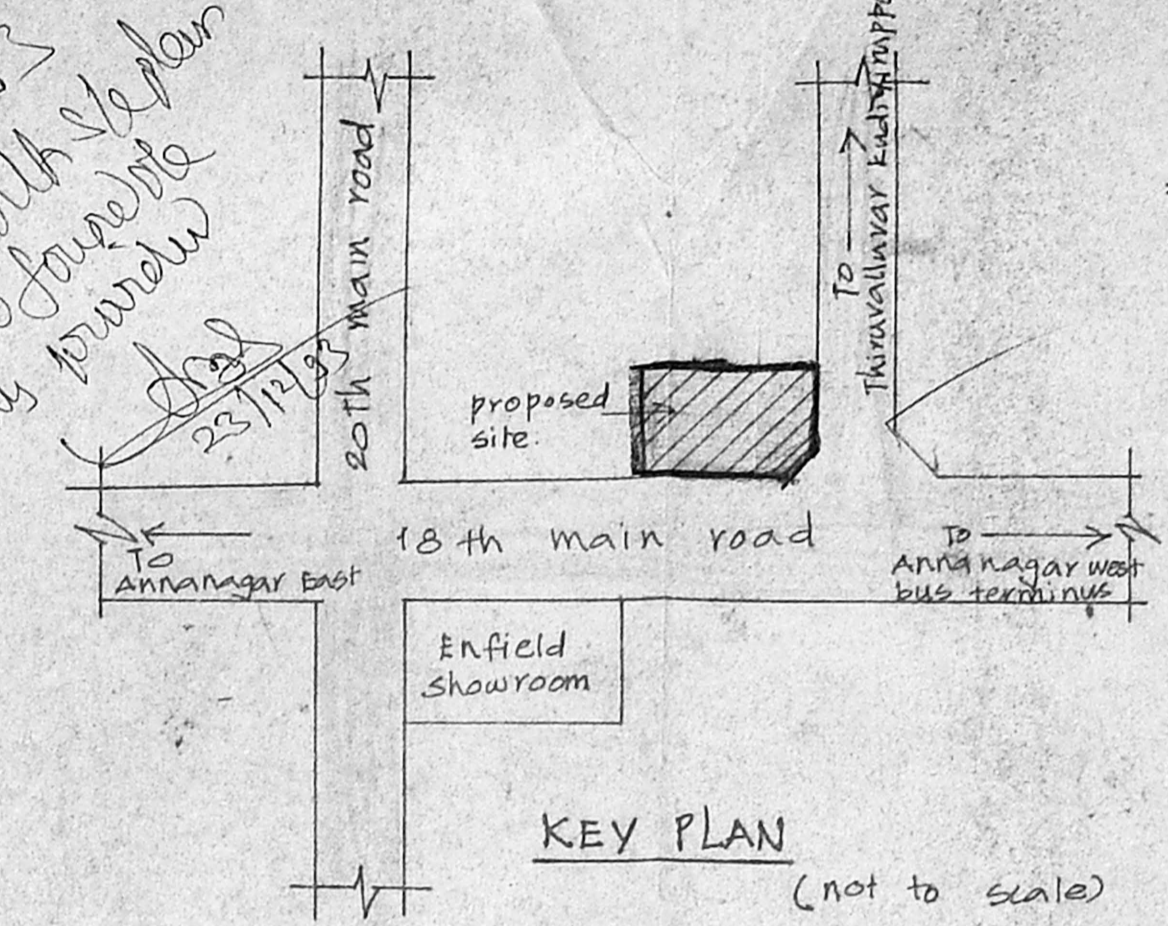 23/12/93
20th main road
To
Thiruvalluvar Kudi
proposed
site.
18th main road
To
Annanagar East
To
Annanagar west
bus terminus
Enfield
showroom
KEY PLAN
(not to scale)